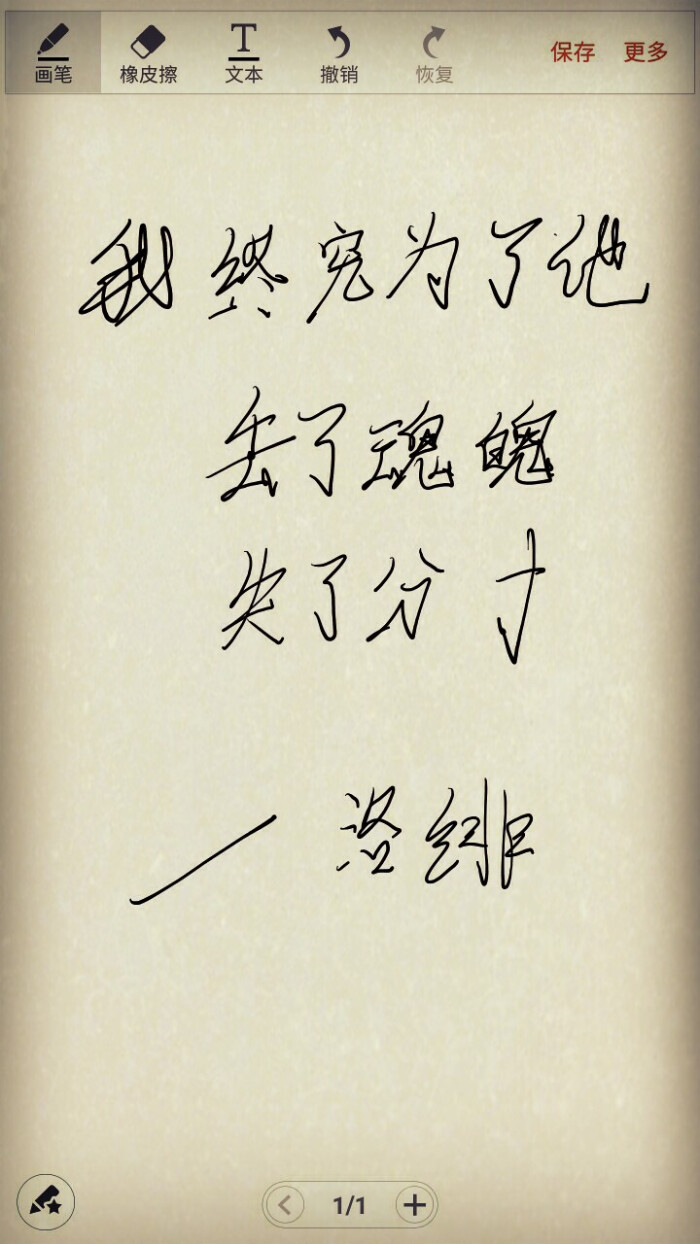 画笔 橡皮擦 文本 撤销 恢复 保存 更多
我终究为了他
丢了魂魄
失了分寸
— 洛绯
1/1